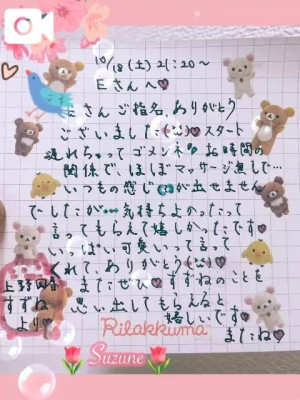 10/18(土)21:20～
Eさんへ♥
Eさんご指名ありがとう
ございました(^^)♥スタート
遅れちゃってゴメンネ お時間の
関係で、ほぼマッサージ無しで…
いつもの感じが出せません
でしたが…気持ちよかったって
言ってもらえて嬉しかったです♥
いっぱい可愛いって言って
くれて、ありがとう(^^)♥
またぜひ すずねのことを
思い出してもらえると
嬉しいです♥
またね♥
上野回春
すずね
より♡
Rilakkuma
Suzune